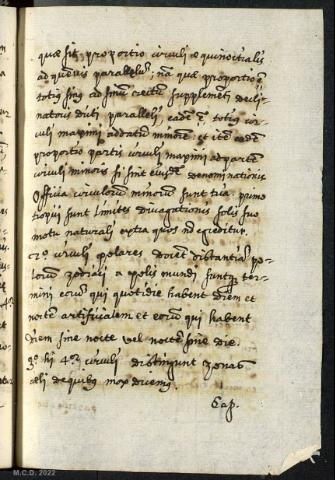 quæ sit proportio circuli æquinoctialis
ad quemvis parallelum; nam quæ proportio ē
totius sinus ad sinum rectum supplementi decli-
nationis dicti paralleli, eadē ē totius cir-
culi maximi ad datum minorē et item eadem
proportio partis circuli maximi ad partē
circuli minoris si sint eiusdē denominationis
Officia circulorum minorum sunt tria. primo
tropici sunt limites divagationis solis suo
motu naturali extra quos nō egreditur.
2º. circuli polares docent distantiā po-
lorum zodiaci a polis mundi, suntq ter-
mini eorum qui quotidie habent diem et
noctē artificialem et eorum qui habent
diem sine nocte vel noctē sine die.
3º. hi 4ºr circuli distingunt zonas
cæli de quibus mox dicemus.
Cap.
M.C.D. 2022